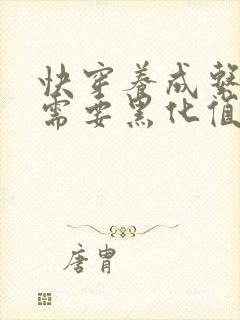 快穿养成系
需要黑化值
唐胄